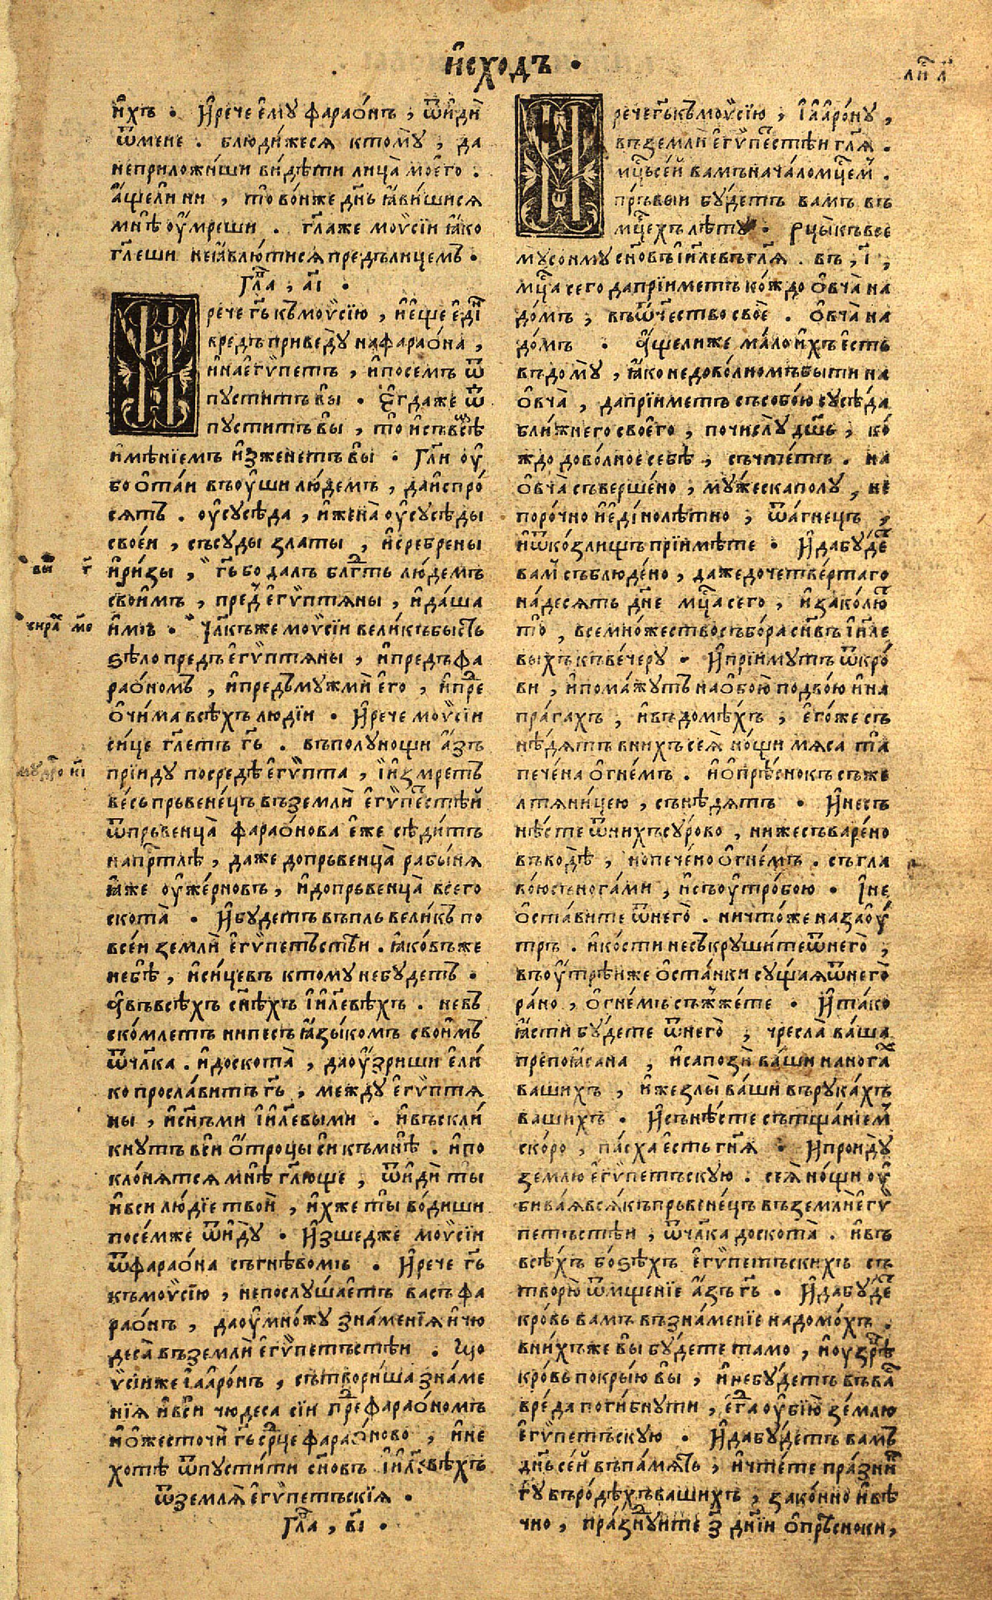 и҆схо́дъ ·
и҆́хъ · И҆рече є҆му̀ фарао́нъ , ѿи҆дѝ
ѿмене . блюди́жеся ктомꙋ̀ , да
неприложи́ши ви́дѣти лица̀ моегѡ̀ .
а҆́щели ни , то во́ньже дн҃ь ꙗ҆ви́шися
мнѣ̀ оу҆́мреши . гл҃аже моѵ̈сі́и ꙗ҆́ко
гл҃еши неꙗ҆влю́тися предълице́мъ .
Гла҃ , а҃і .
И рече гь҃ къмоѵ̈сі́ю , и҆є҆ще є҆ди́нъ
вре́дъ приведꙋ̀ нафарао́на ,
и҆наегѵ̈петъ , и҆посемъ ѿ
пꙋститъ вы̀ . Є҆гда́же ѿ
пꙋститъ вы̀ , то и҆съвсѣ́м
и҆мѣ́нїемъ и҆зженетъ вы̀ . Гл҃и оу҆̀
бо о҆таи въоу҆́ши лю́демъ , да и҆спро́
сятъ . оу҆сꙋсѣ́да , и҆жена̀ оу҆сꙋсѣ́ды
своеѝ , съсꙋды зла́ты , и҆сре́брены
и҆ри́зы , гь҃ бо далъ блг҃ть лю́демъ
свои́мъ , пред є҆гѵ̈птя́ны , и҆да́ша
и҆́мъ . Чл҃къже моѵ̈сіи вели́къ бы́сть
ѕѣло̀ предъ є҆гѵ̈птя́ны , и҆предъ фа
рао́номъ , и҆предъмꙋжмѝ є҆го̀ , и҆пре
о҆чи́ма всѣ́хъ люді́и . И҆рече моѵ̈сі́и
си́це гл҃етъ гь҃ . въполꙋнощи а҆́зъ
прїи́дꙋ посредѣ̀ є҆гѵ̈́пта , и҆и҆змретъ
ве́сь пръвене́цъ въземлѝ є҆гѵ̈́пестѣй
ѿпръвенца̀ фарао́нова є҆́же сѣди́тъ
напртлѣ̀ , да́же допръвенца̀ рабы́ня
ꙗ҆́же оу҆же́рновъ , и҆допръвенца̀ всего̀
скота̀ . И҆бꙋдетъ въпль вели́къ по
все́и землѝ є҆гѵ̈петъстѣи . ꙗ҆ко́въже
небѣ̀ , и҆си́цевъ ктомꙋ небꙋдетъ .
а҆въвсѣ́хъ сн҃ѣхъ і҆и҃левѣхъ . небъ
ско́млетъ ни песъ ꙗ҆зы́комъ свои́мъ
ѿчл҃ка . и҆доскота̀ , даоу҆́зриши є҆ли́
ко просла́витъ гь҃ , междꙋ є҆гѵ̈птя
ны , и҆сн҃ъми і҆и҃левыми . и҆въскли́
кнꙋтъ всѝ о҆́троцы сѝ къмнѣ̀ . и҆по
кло́нятся мнѣ̀ гл҃юще , ѿи҆дѝ ты̀
и҆всѝ лю́дїе твоѝ , и҆хже ты̀ во́диши
посе́мже ѿи҆дꙋ̀ . И҆зше́дже моѵ̈сіи
ѿфарао́на съгнѣ́вомъ . И҆рече гь҃
къмоѵ̈сі́ю , непослꙋшаетъ васъ фа
рао́нъ , даоу҆мно́жꙋ зна́менїя и҆чю
деса̀ въземлѝ є҆гѵ̈петъстѣи . Мо
ѵ̈сі́иже і҆ааро́нъ , сътвори́ша зна́ме
нїя и҆всѝ чюдеса сїѝ пре фарао́номъ
и҆о҆жесточѝ гь҃ срце фарао́ново , и҆не
хотѣ̀ ѿпꙋсти́ти сн҃овъ і҆и҃левѣхъ
ѿземля̀ є҆гѵ̈петъскїя .
Гла҃ , в҃і .
И рече гь҃ къмоѵ̈сі́ю , і҆ааро́нꙋ ,
въземлѝ є҆гѵ̈петстѣи гл҃я .
мц҃ьсе́й вамъ нача́ло мц҃ем .
пръвыи бꙋдетъ вамъ въ
мц҃ехъ лѣ́тꙋ . Рцы̀ къвсе
мꙋ сонмꙋ сн҃овъ і҆и҃левъ гл҃я . въ , і҃ ,
мц҃а сего дапрїи́метъ ко́ждо о҆вча̀ на
до́мъ , въѿчество своѐ . о҆вча̀ на
до́мъ . А҆́щелиже ма́ло и҆́хъ є҆сть
въдомꙋ̀ , ꙗ҆́ко недово́лномъ бы́ти на
о҆вча̀ , дапрїи́метъ съсобо́ю сꙋсѣ́да
бли́жнего своего̀ , почислꙋ̀ дш҃ъ , ко́
ждо дово́лное себѣ̀ , съчте́тъ . на
о҆вча̀ съверше́но , мꙋ́жеска полꙋ , не
поро́чно и҆є҆ди́нолѣтно , ѿа́гнецъ ,
и҆ѿко́злищъ прїи́мѣте . И҆дабꙋ́де
вамъ съблюде́но , да́же дочетве́ртаго
на́десять дн҃е мц҃а сего , и҆зако́лю
то̀ , все мно́жество събо́ра сн҃въ і҆и҃ле
выхъ къве́черꙋ . И҆прїи́мꙋтъ ѿкро́
ви , и҆пома́жꙋтъ наобою̀ подво́ю и҆на
пра́гахъ , и҆въдомѣ́хъ , є҆го́же съ
нѣдя́тъ вни́хъ . сея̀ но́щи мяса та
пече́на о҆гне́мъ . и҆о҆прѣ́снокъ съже
лтяни́цею , сънѣдя́тъ . И҆несъ
нѣ́сте ѿни́хъ сꙋ́рово , нижесъваре́но
въводѣ̀ , но пече́но о҆гне́мъ . съгла
во́ю съногами , и҆съоу҆тро́бою . І҆не
о҆ста́вите ѿнего̀ . ничто́же назаоу҆́
трѣ . и҆ко́сти несъкрꙋши́те ѿнего̀ ,
въоу҆́трѣиже о҆ста́нки сꙋщая ѿнего̀
ра́но , о҆гне́мъ съжже́те . И҆та́ко
ꙗ҆́сти бꙋ́дете ѿнего̀ , чре́сла ва́ша
препоꙗ҆сана , и҆сапозѝ ва́ши нанога
вашихъ , и҆жезлы̀ ва́ши върꙋка́хъ
вашихъ . И҆сънѣ́сте сътща́нїем
ско́ро , па́сха є҆сть гн҃я . И҆проидꙋ̀
зе́млю є҆гѵ̈́петъскꙋю . сея̀ но́щи оу҆
бива́я вся́къ пръвене́цъ въземлѝ є҆гѵ̈
петъстѣи , ѿчл҃ка доскота̀ . и҆въ
всѣ́хъ бо́зѣхъ є҆гѵ̈петъскихъ съ
творю̀ ѿмще́нїе а҆́зъ гь҃ . И҆дабꙋде
кро́вь вамъ възна́менїе надомо́хъ .
вни́хъже вы̀ бꙋ́дете та́мо , и҆оузрѣ
кро́вь покры́ю вы̀ , и҆небꙋ́детъ въва
вре́да поги́бнꙋти , є҆га оу҆бїю̀ зе́млю
є҆гѵ̈петъскꙋю . И҆дабꙋдетъ вамъ
дн҃ьсе́й въпа́мять , и҆чте́те пра́зни
гꙋ въро́дѣхъ вашихъ , зако́нно и҆вѣ
чно , пра́знꙋите з҃ дні́и о҆прѣсноки ,